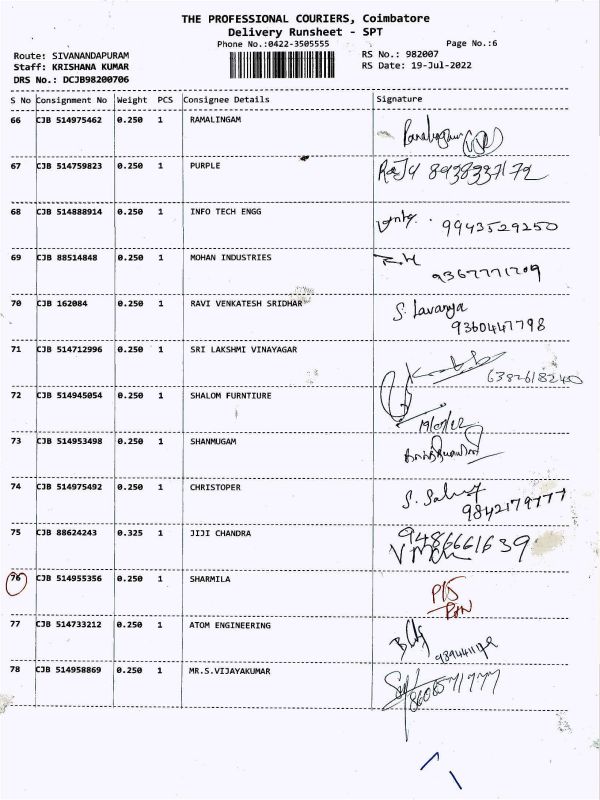 THE PROFESSIONAL COURIERS, Coimbatore
Delivery Runsheet - SPT
Phone No.:0422-3505555 Page No.:6
Route: SIVANANDAPURAM RS No.: 982007
Staff: KRISHANA KUMAR RS Date: 19-Jul-2022
DRS No.: DCJB98200706
S No Consignment No Weight PCS Consignee Details Signature
66 CJB 514975462 0.250 1 RAMALINGAM
67 CJB 514759823 0.250 1 PURPLE
68 CJB 514888914 0.250 1 INFO TECH ENGG 9943529250
69 CJB 88514848 0.250 1 MOHAN INDUSTRIES
70 CJB 162084 0.250 1 RAVI VENKATESH SRIDHAR S. Lavanya
9360447798
71 CJB 514712996 0.250 1 SRI LAKSHMI VINAYAGAR
6382618240
72 CJB 514945054 0.250 1 SHALOM FURNTIURE
73 CJB 514953498 0.250 1 SHANMUGAM
74 CJB 514975492 0.250 1 CHRISTOPER
9842179777
75 CJB 88624243 0.325 1 JIJI CHANDRA 9486661639
76 CJB 514955356 0.250 1 SHARMILA
77 CJB 514733212 0.250 1 ATOM ENGINEERING
78 CJB 514958869 0.250 1 MR.S.VIJAYAKUMAR